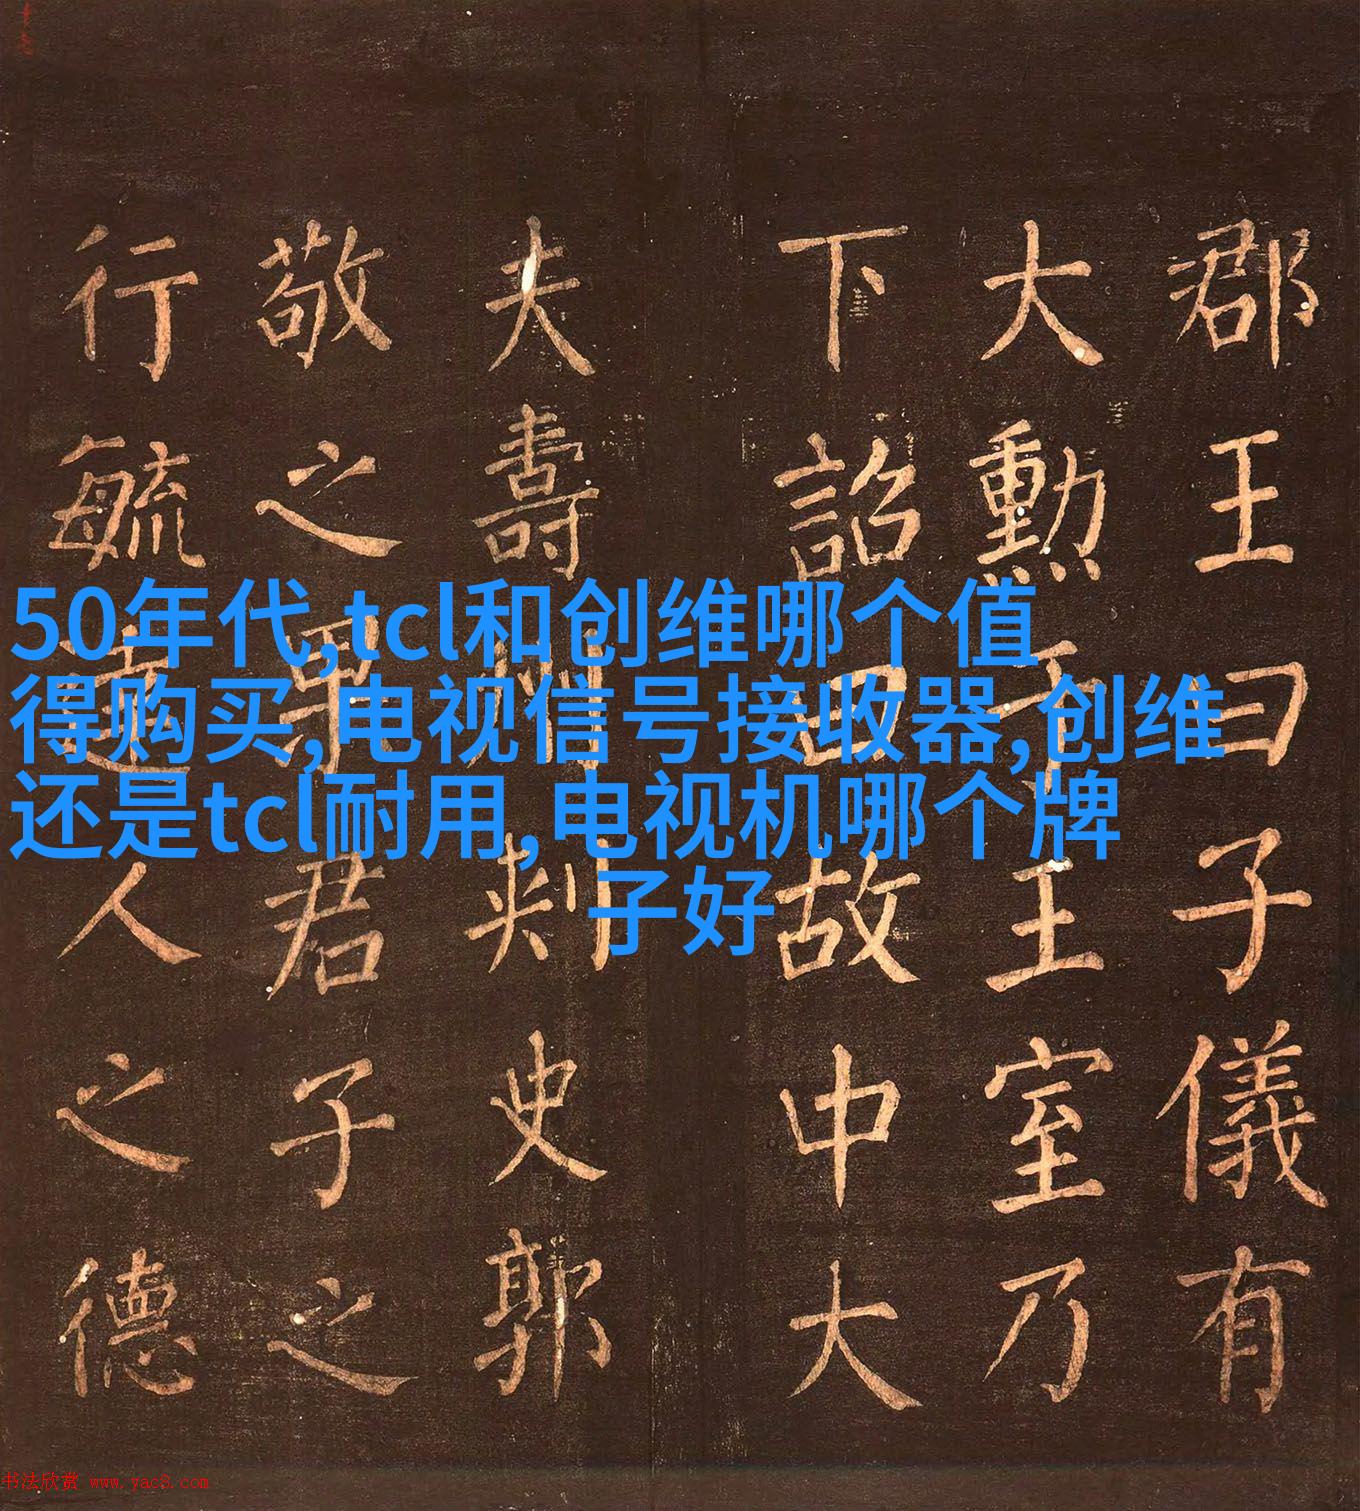 郡王曰子儀有
大勳于王室乃
下詔曰故中大
夫壽州刺史郭
敬之果君子之
行毓達人之德
50年代,tcl和创维哪个值
得购买,电视信号接收器,创维
还是tcl耐用,电视机哪个牌
子好
书法欣赏 www.yac8.com